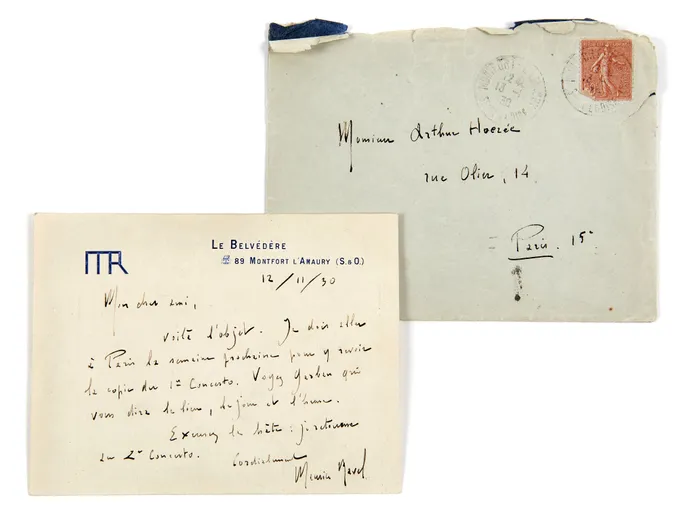 Monsieur Arthur Hoérée
rue Olier, 14
= Paris. 15e
MR
Le Belvédère
☎ 89 Montfort l'Amaury (S.&O.)
12/11/30
Mon cher ami,
voilà l'objet. Je dois aller
à Paris la semaine prochaine pour y revoir
la copie du 1er Concerto. Voyez Gerben qui
vous dira le lieu, le jour et l'heure.
Excusez la hâte : je retourne
au 2e Concerto. Cordialement
Maurice Ravel